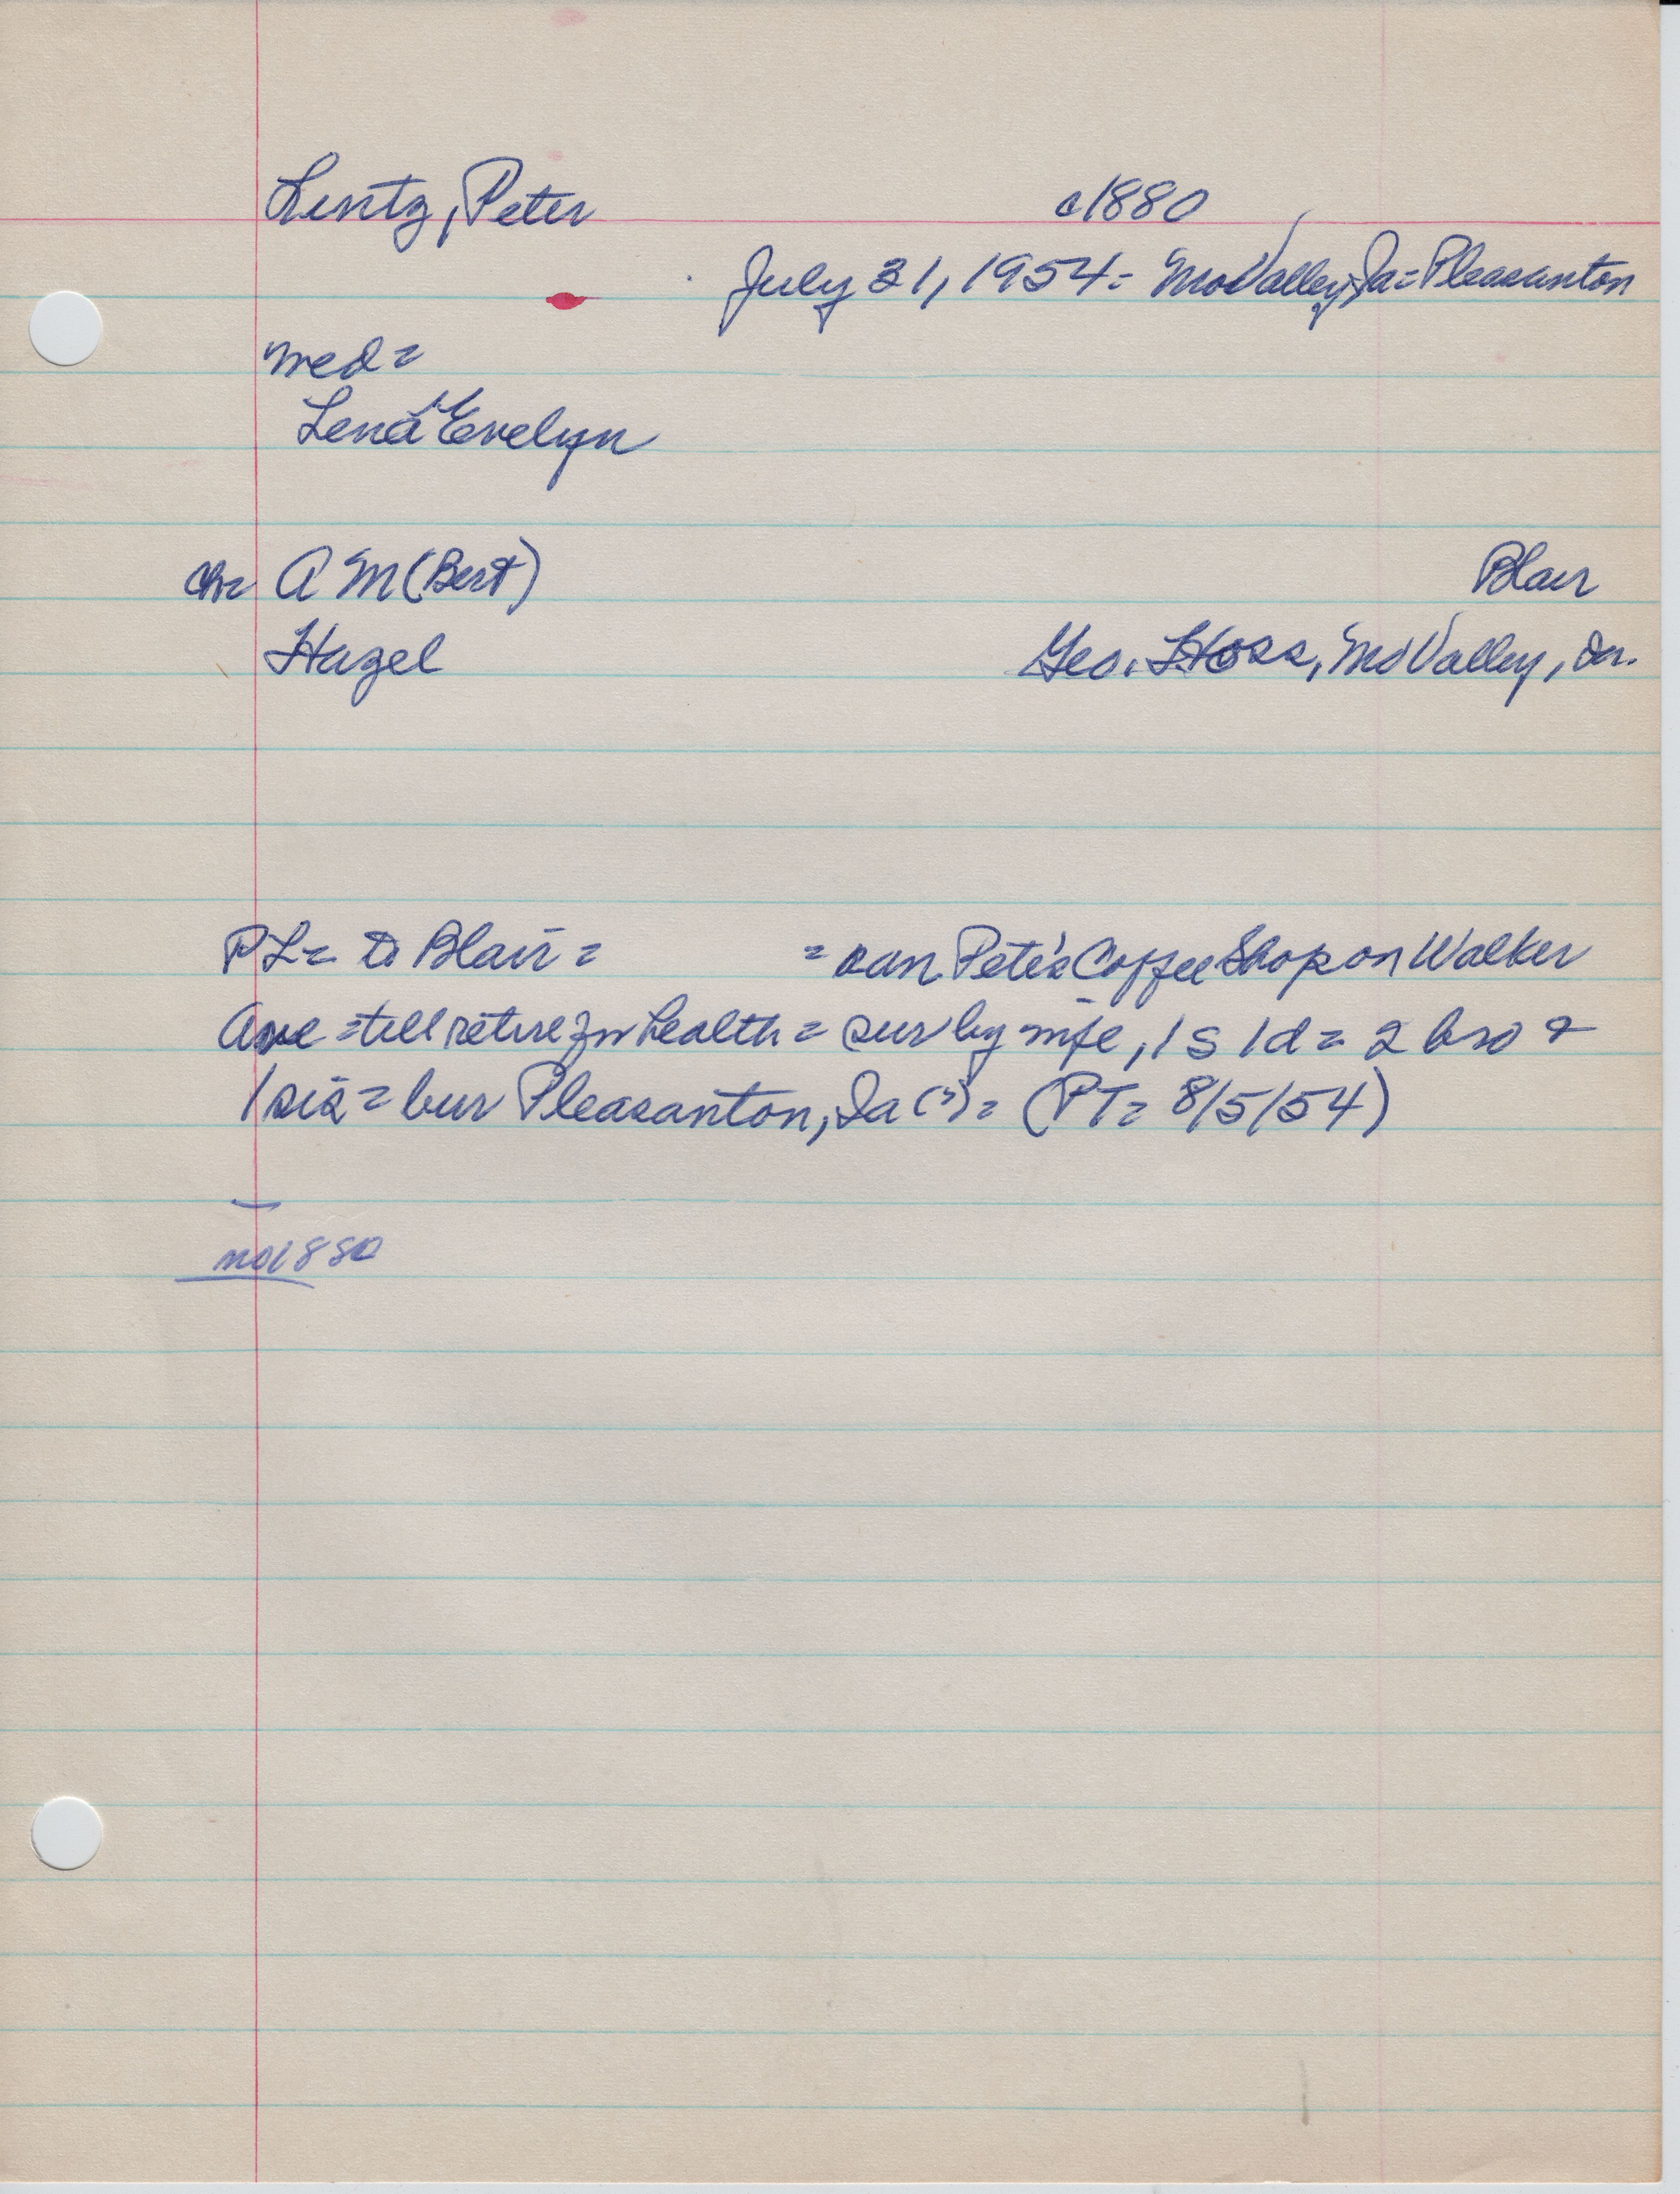 Lentz, Peter c1880
July 31, 1954 - Mo Valley, Ia = Pleasanton
med =
Lena Evelyn
ch = A M (Bert) Blair
Hazel Geo. Hoss, Mo Valley, Ia.
PL = to Blair = = ran Pete's Coffee Shop on Walker
Ave = till retire for health = sur by wife, 1 s 1 d = 2 bro &
1 sis = bur Pleasanton, Ia (?) = (PT = 8/5/54)
no 1880